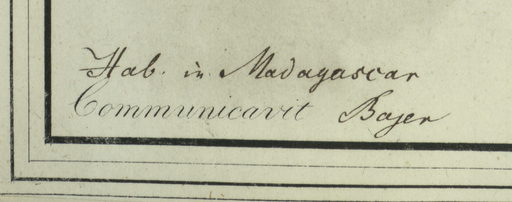 Hab. in Madagascar
Communicavit Bojer